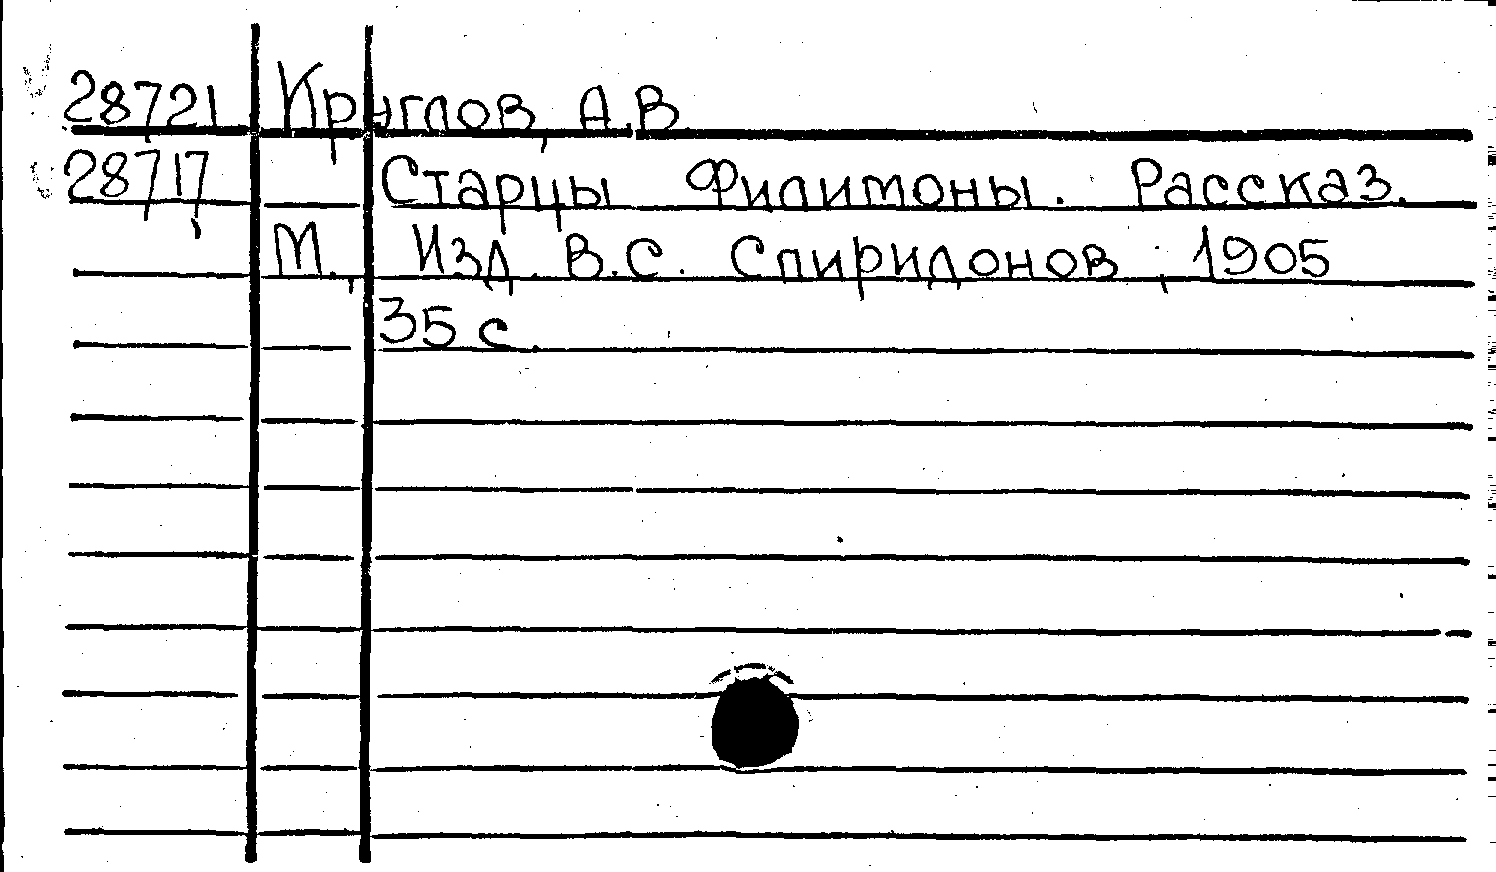 28721 Круглов, А.В
28717 Старцы Филимоны. Рассказ.
М., Изд. В.С. Спиридонов, 1905
35 с.